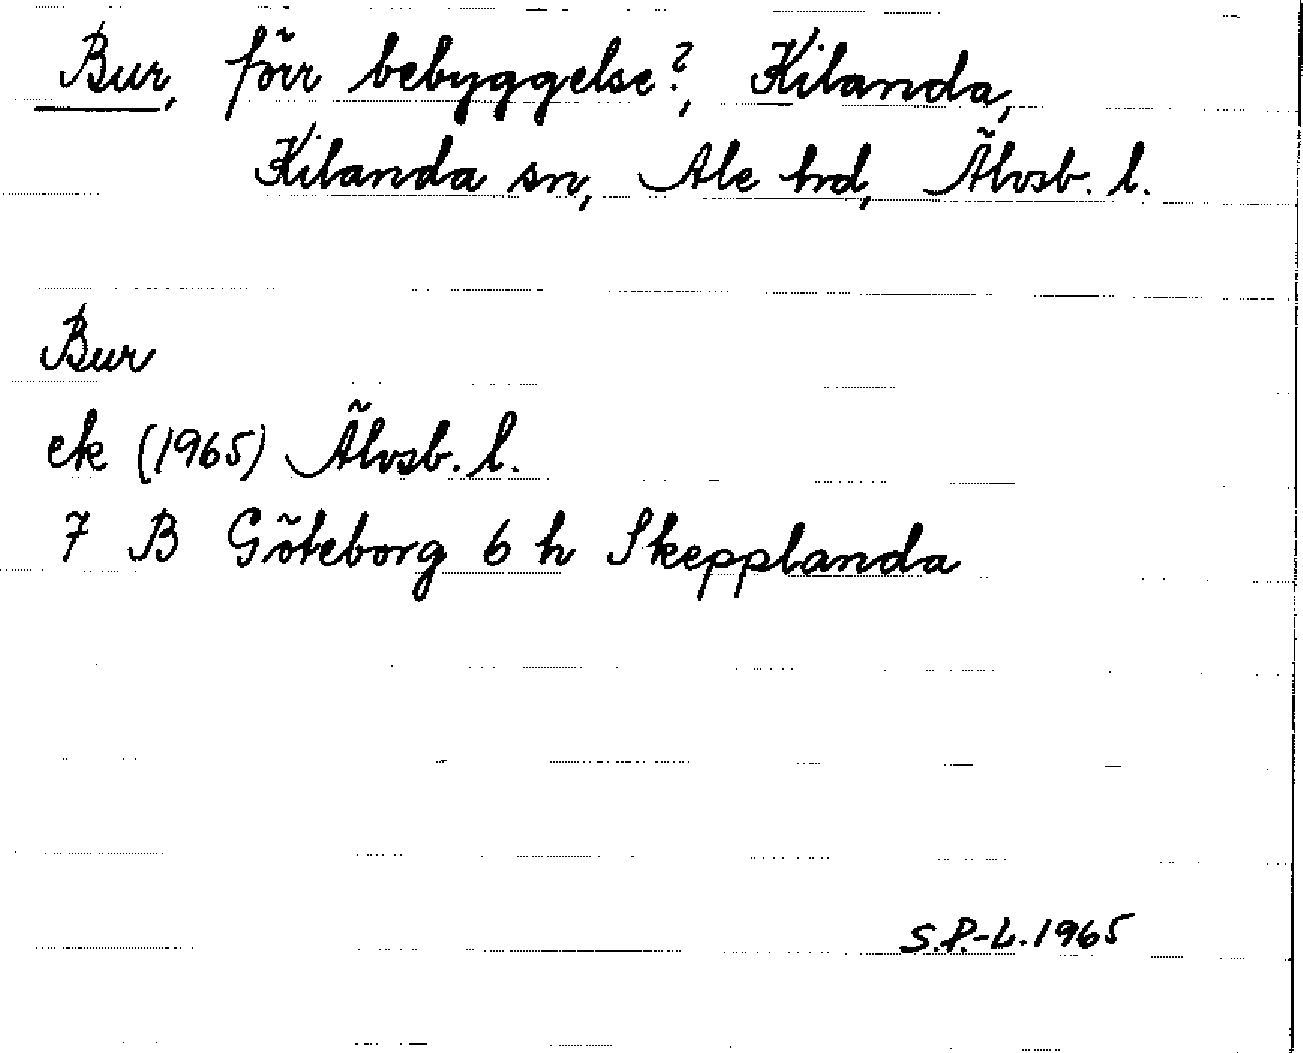 Bur, förr bebyggelse?, Kilanda,
Kilanda sn, Ale hrd, Älvsb. l.
Bur
ek (1965) Älvsb. l.
7 B Göteborg 6 h Skepplanda
S.P.-L. 1965